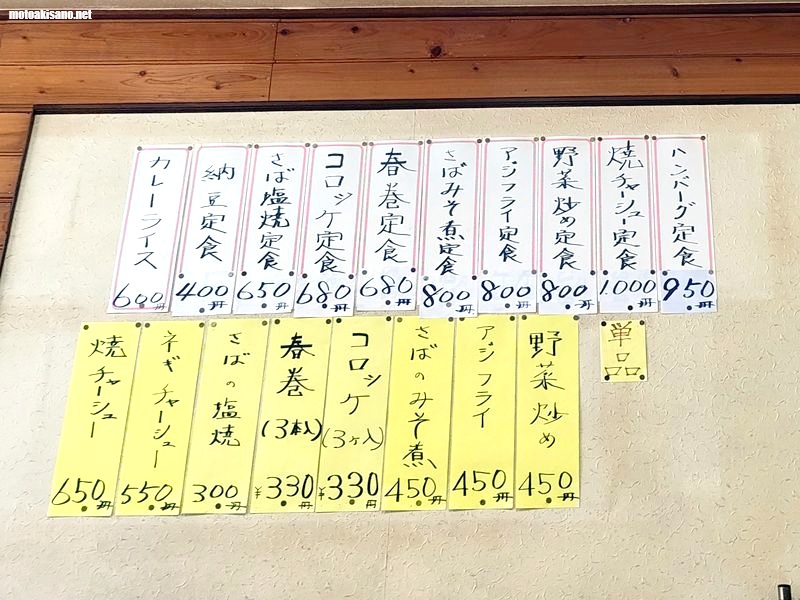 motoakisano.net
ハンバーグ定食
950円
焼チャーシュー定食
1000円
野菜炒め定食
800円
アジフライ定食
800円
さばみそ煮定食
800円
春巻定食
680円
コロッケ定食
680円
さば塩焼定食
650円
納豆定食
400円
カレーライス
600円
単品
野菜炒め
450円
アジフライ
450円
さばのみそ煮
450円
コロッケ
(3ヶ入)
¥330円
春巻
(3本入)
¥330円
さばの塩焼
300円
ネギチャーシュー
550円
焼チャーシュー
650円